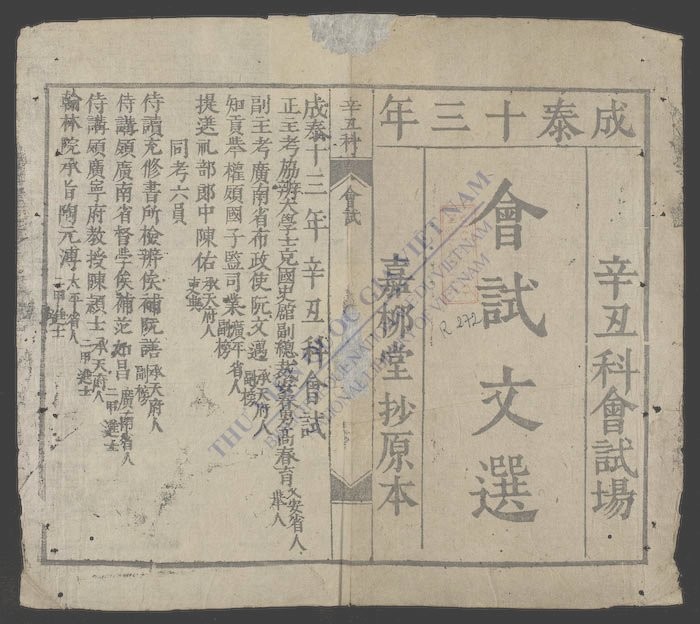 成泰十三年
辛丑科會試場
會試文選
嘉柳堂抄原本
辛丑科
會試
成泰十三年辛丑科會試
正主考協辦大學士充國史館副總裁安春男高春育乂安省人舉人
副主考廣南省布政使阮文邁承天府人副榜
知貢舉權領國子監司業 省人副榜
提選礼部郎中陳佑承天府人
同考六員
侍讀充修書所檢辨侯補阮譱承天府人副榜
侍講領廣南省督學侯補范如昌廣南省人二甲進士
侍講領廣寧府教授陳顥士承天府人二甲進士
翰林院承旨陶元溥太平省人二甲進士
THƯ VIỆN QUỐC GIA VIỆT NAM
BIBLIOTHÈQUE NATIONALE DU VIETNAM
NATIONAL LIBRARY OF VIETNAM
R 272